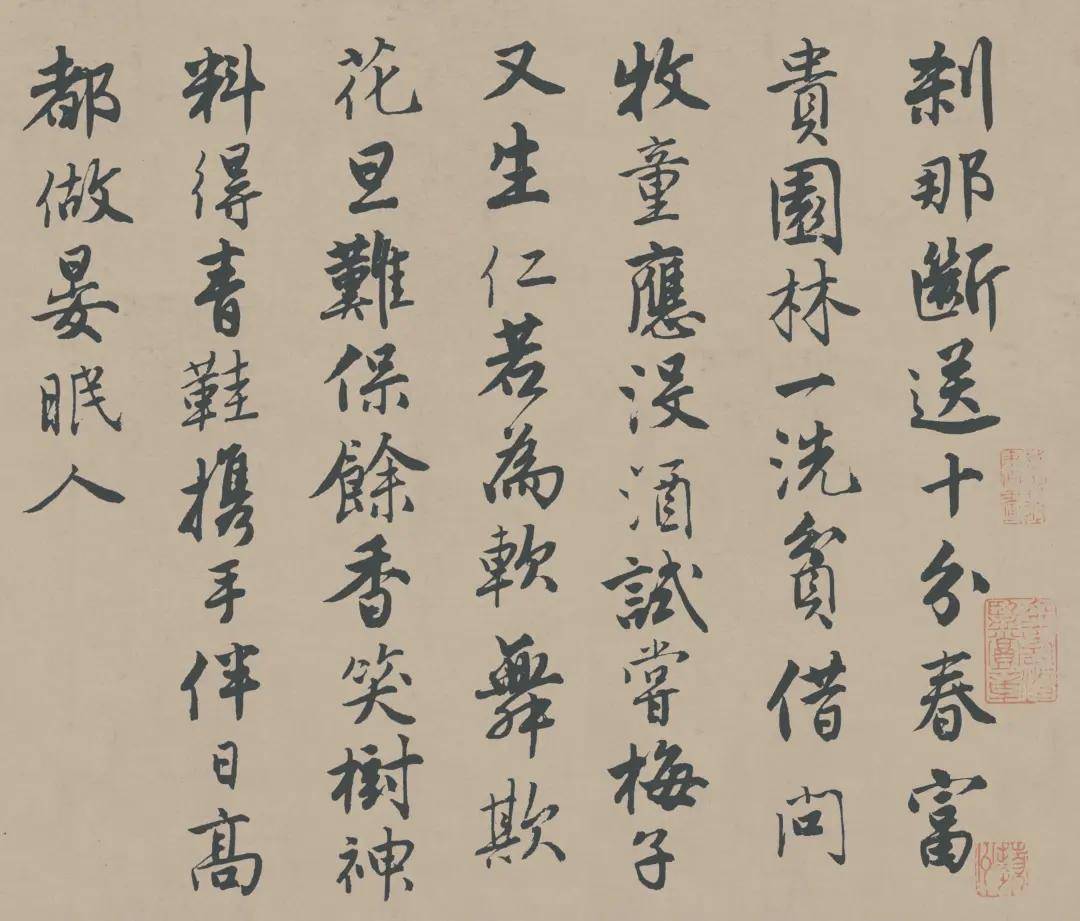 刹那斷送十分春富
貴園林一洗貧借問
牧童應没酒試嘗梅子
又生仁若為軟舞欺
花旦難保餘香笑樹神
料得青鞋攜手伴日高
都做晏眠人